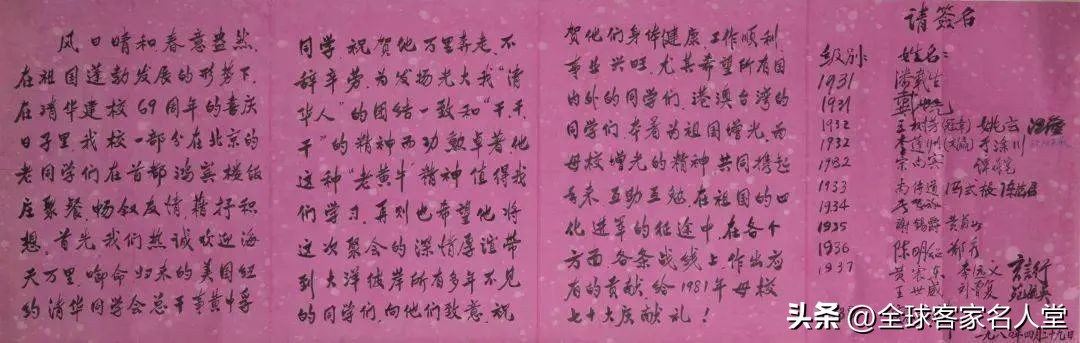 风日晴和春意盎然,
在祖国蓬勃发展的形势下,
在清华建校69周年的喜庆
日子里,我校一部分在北京的
老同学们在首都鸿宾楼饭
庄聚餐畅叙友情藉抒积
想。首先我们热诚欢迎海
天万里,啣命归来的美国纽
约清华同学会总干事黄中孚
同学,祝贺他万里奔走,不
辞辛劳,为发扬光大我“清
华人”的团结一致和“干,干,
干”的精神而功勲卓著他
这种“老黄牛”精神值得我
们学习,再则也希望他将
这次聚会的深情厚谊带
到大洋彼岸所有多年不见
的同学们,向他们致意,祝
贺他们身体健康,工作顺利,
事业兴旺,尤其希望所有国
内外的同学们,港澳台湾的
同学们本着为祖国增光,为
母校增光的精神,共同携起
手来,互助互勉,在祖国的四
化进军的征途中,在各个
方面,各条战线上,作出应
有的贡献给1981年母校
七十大庆献礼!
请签名
级别: 姓名:
1931
1931
1932
1932
1932
1933
1934
1935
1936 陈明绍
1937
王世威 孙曾复
一九八〇年四月二十九日
头条 @全球客家名人堂